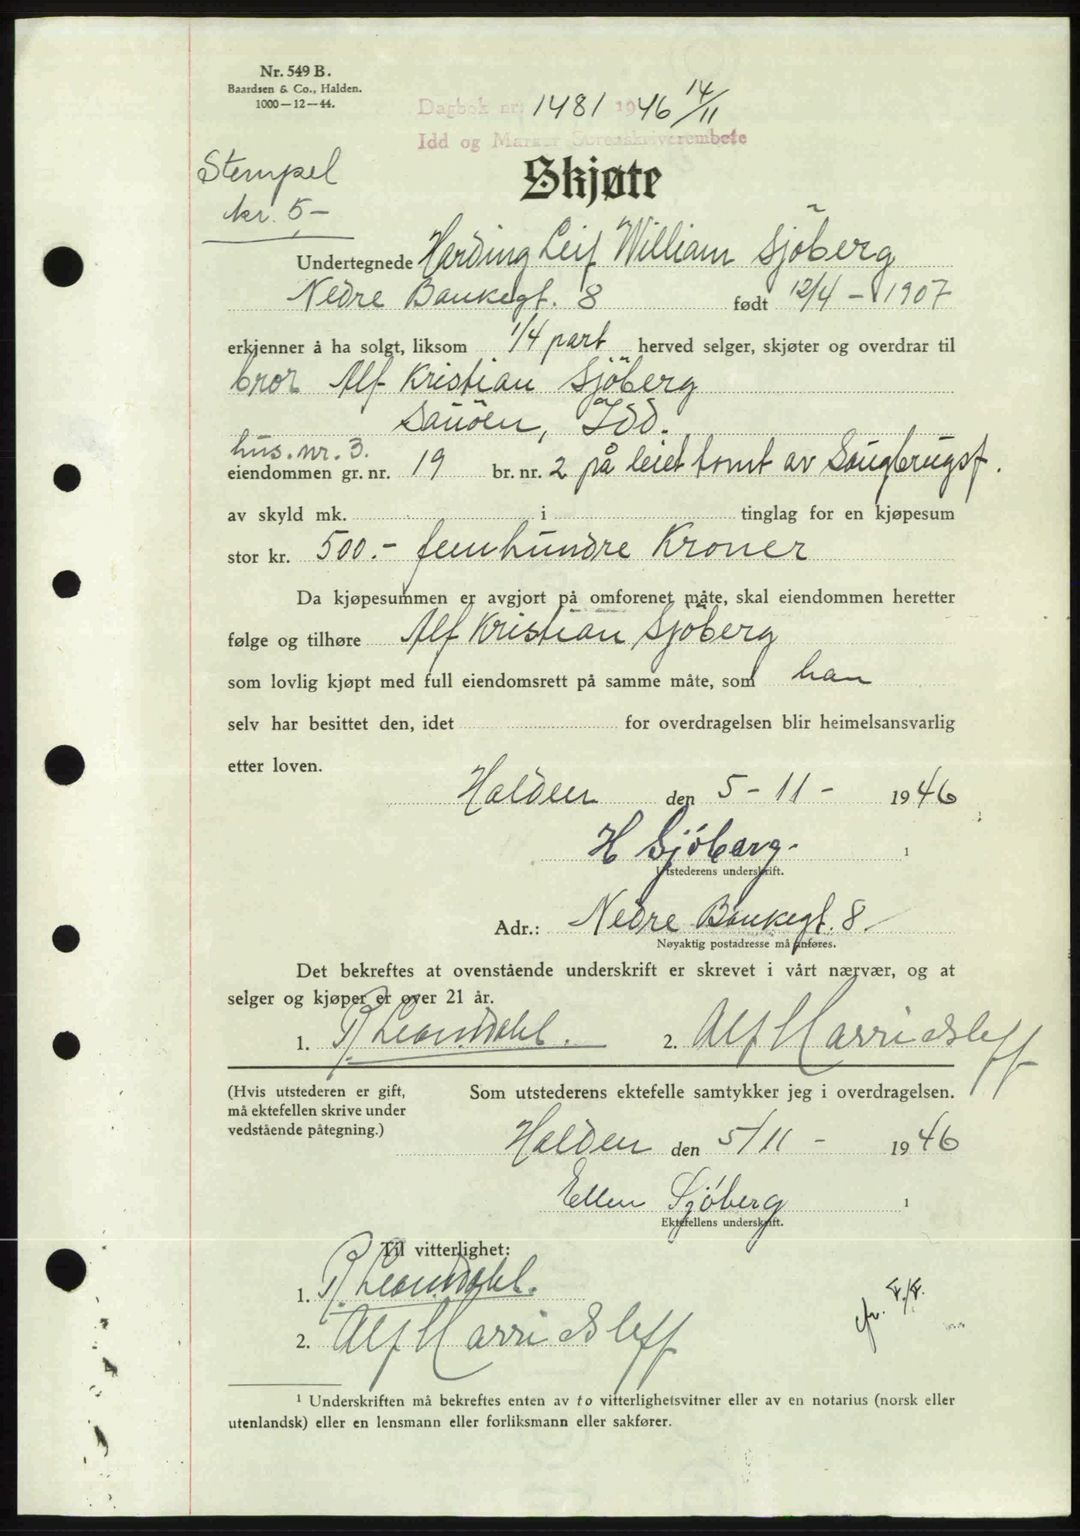 Nr. 549 B.
Baardsen & Co., Halden.
1000—12—44.
Dagbok nr. 1481 1946 14/11
Idd og Marker Sorenskriverembete
Stempel
kr. 5-
Skjøte
Undertegnede Harding Leif William Sjöberg
Nedre Bankegt. 8 født 12/4 - 1907
erkjenner å ha solgt, liksom 1/4 part herved selger, skjøter og overdrar til
bror Alf Kristian Sjöberg
Sauöen, Idd.
hus. nr. 3.
eiendommen gr. nr. 19 br. nr. 2 på leiet tomt av Saugbrugsf.
av skyld mk. i tinglag for en kjøpesum
stor kr. 500.- femhundre Kroner
Da kjøpesummen er avgjort på omforenet måte, skal eiendommen heretter
følge og tilhøre Alf Kristian Sjöberg
som lovlig kjøpt med full eiendomsrett på samme måte, som han
selv har besittet den, idet for overdragelsen blir heimelsansvarlig
etter loven.
Halden den 5-11- 1946
H Sjöberg. 1
Utstederens underskrift.
Adr.: Nedre Bankegt. 8.
Nøyaktig postadresse må anføres.
Det bekreftes at ovenstående underskrift er skrevet i vårt nærvær, og at
selger og kjøper er over 21 år.
1. 2. Alf Harri
(Hvis utstederen er gift,
må ektefellen skrive under
vedstående påtegning.)
Som utstederens ektefelle samtykker jeg i overdragelsen.
Halden den 5/11 - 1946
Ellen Sjöberg 1
Ektefellens underskrift.
Til vitterlighet:
1.
2. Alf Harri
¹ Underskriften må bekreftes enten av to vitterlighetsvitner eller av en notarius (norsk eller
utenlandsk) eller en lensmann eller forliksmann eller sakfører.